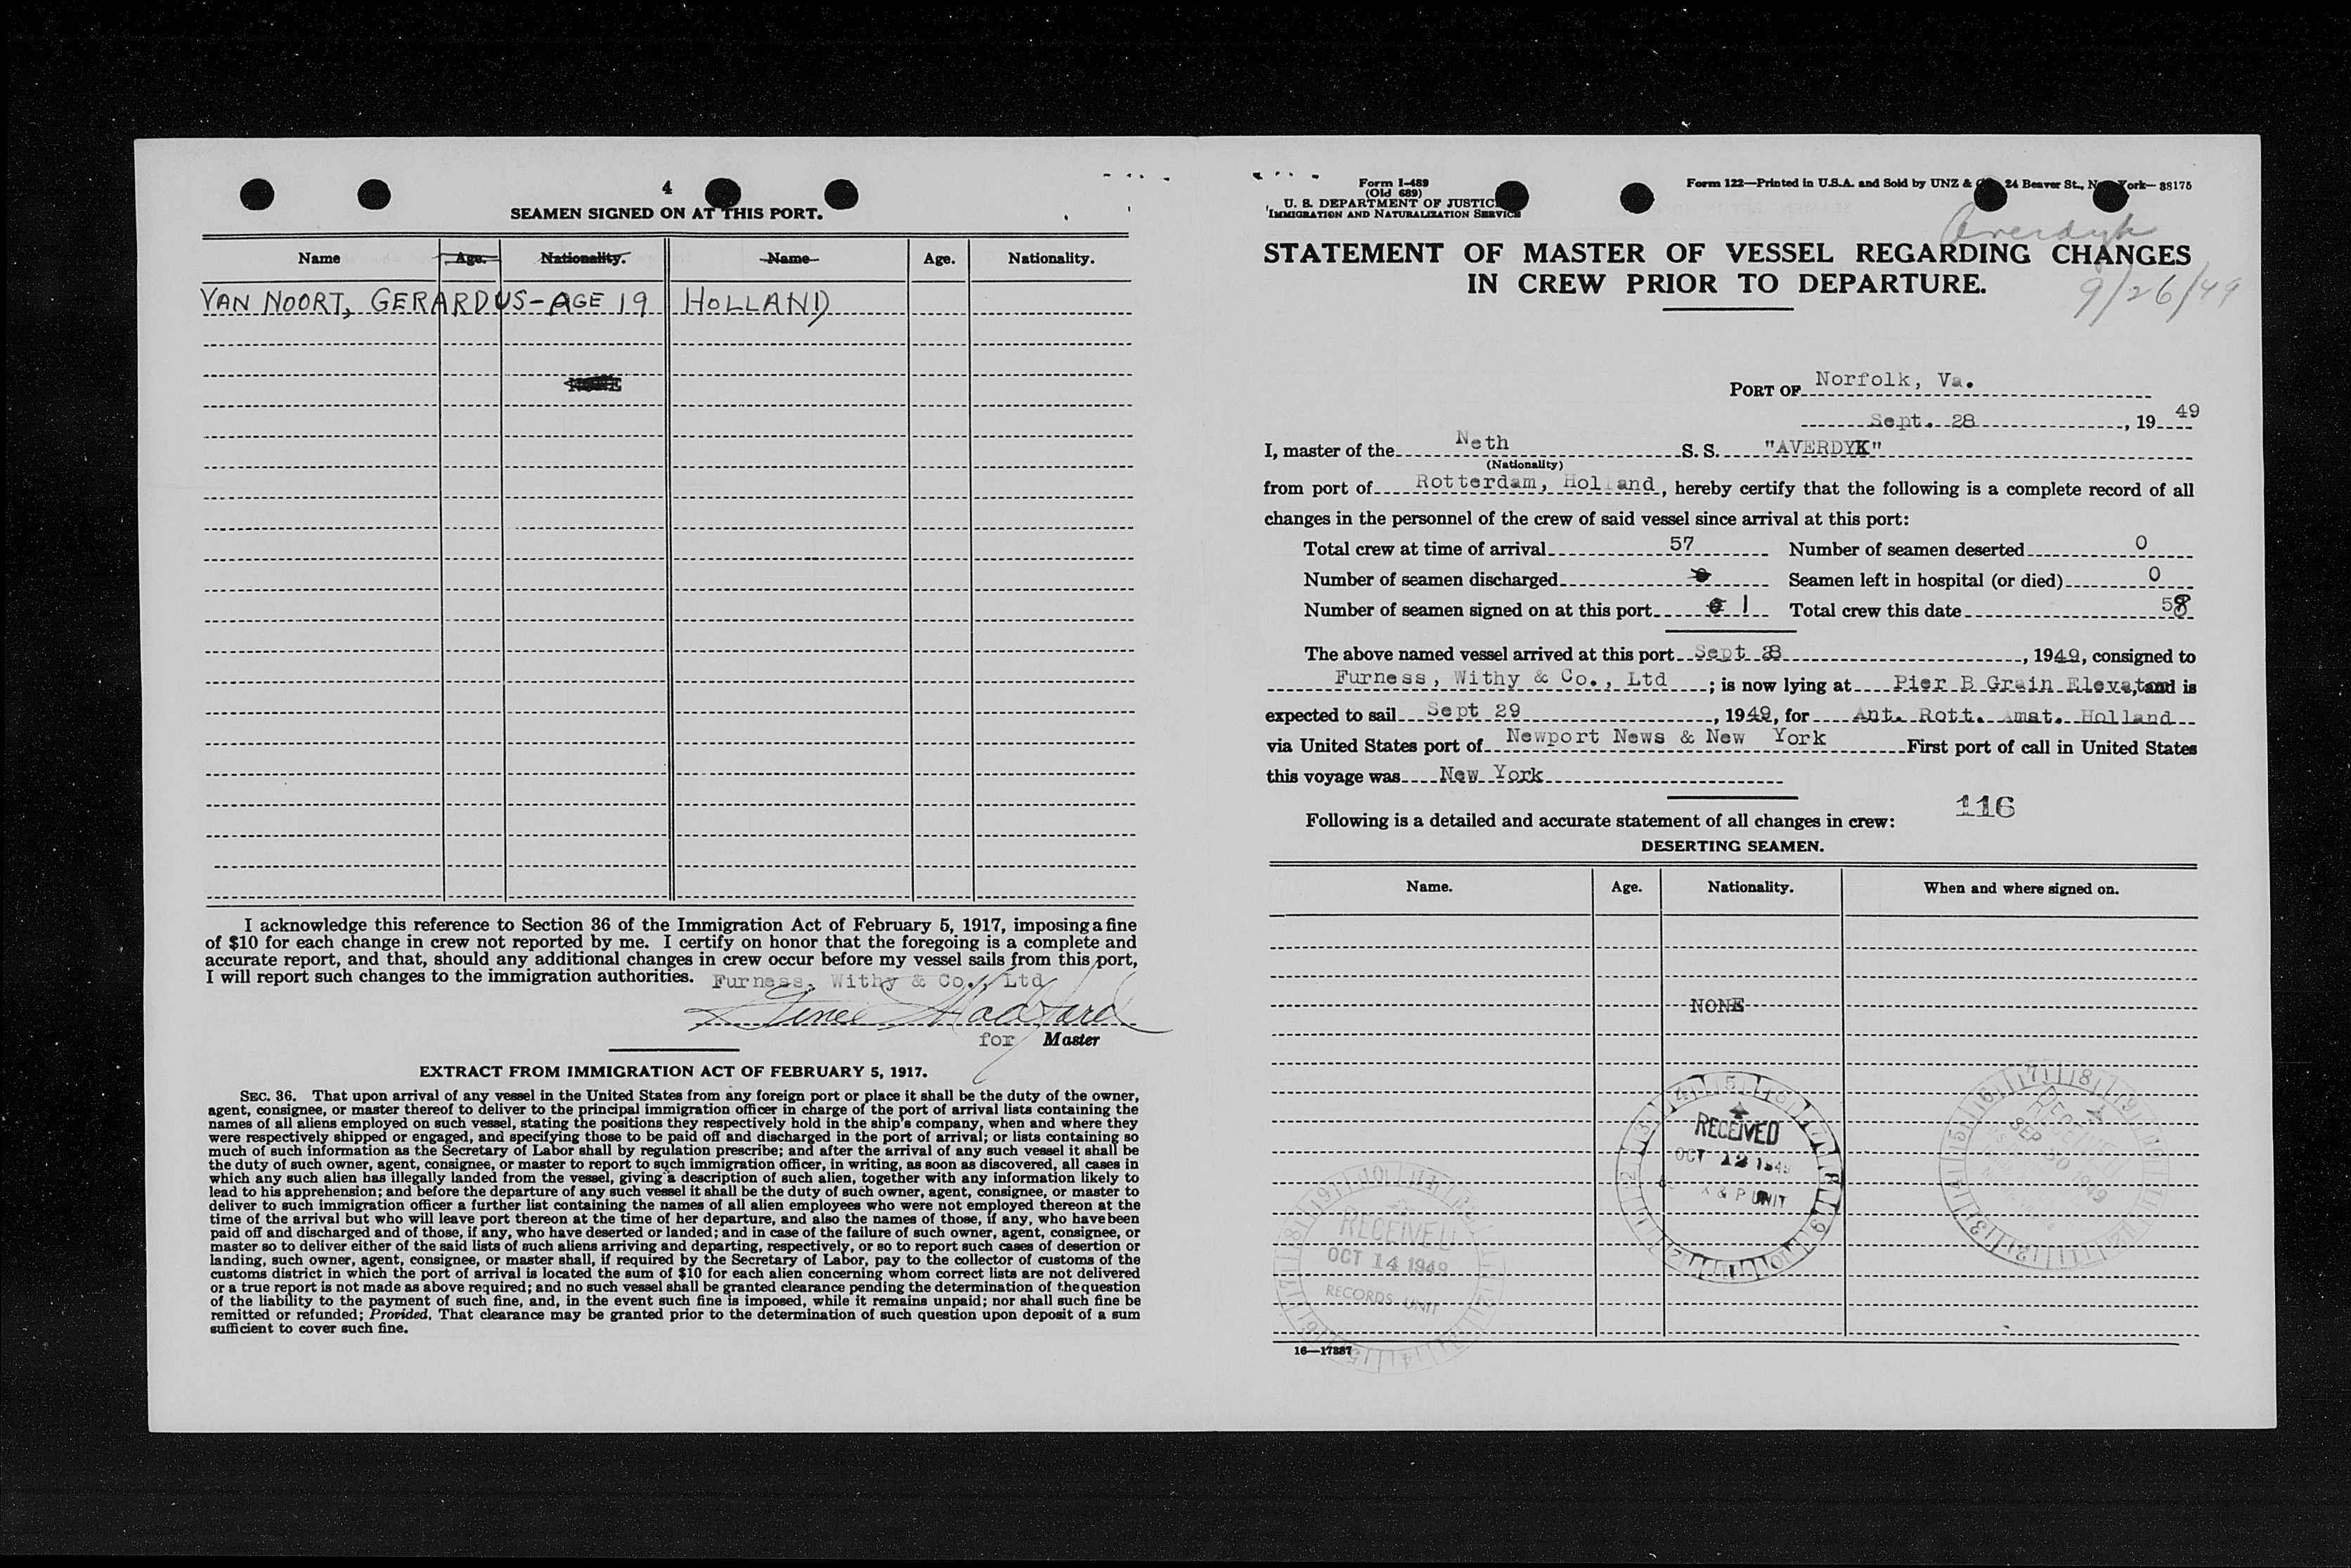 4
SEAMEN SIGNED ON AT THIS PORT.
Name Age. Nationality. Name Age. Nationality.
VAN NOORT, GERARDUS - AGE 19 HOLLAND
NONE
I acknowledge this reference to Section 36 of the Immigration Act of February 5, 1917, imposing a fine
of $10 for each change in crew not reported by me. I certify on honor that the foregoing is a complete and
accurate report, and that, should any additional changes in crew occur before my vessel sails from this port,
I will report such changes to the immigration authorities. Furness, Withy & Co., Ltd
for Master
EXTRACT FROM IMMIGRATION ACT OF FEBRUARY 5, 1917.
SEC. 36. That upon arrival of any vessel in the United States from any foreign port or place it shall be the duty of the owner,
agent, consignee, or master thereof to deliver to the principal immigration officer in charge of the port of arrival lists containing the
names of all aliens employed on such vessel, stating the positions they respectively hold in the ship's company, when and where they
were respectively shipped or engaged, and specifying those to be paid off and discharged in the port of arrival; or lists containing so
much of such information as the Secretary of Labor shall by regulation prescribe; and after the arrival of any such vessel it shall be
the duty of such owner, agent, consignee, or master to report to such immigration officer, in writing, as soon as discovered, all cases in
which any such alien has illegally landed from the vessel, giving a description of such alien, together with any information likely to
lead to his apprehension; and before the departure of any such vessel it shall be the duty of such owner, agent, consignee, or master to
deliver to such immigration officer a further list containing the names of all alien employees who were not employed thereon at the
time of the arrival but who will leave port thereon at the time of her departure, and also the names of those, if any, who have been
paid off and discharged and of those, if any, who have deserted or landed; and in case of the failure of such owner, agent, consignee, or
master so to deliver either of the said lists of such aliens arriving and departing, respectively, or so to report such cases of desertion or
landing, such owner, agent, consignee, or master shall, if required by the Secretary of Labor, pay to the collector of customs of the
customs district in which the port of arrival is located the sum of $10 for each alien concerning whom correct lists are not delivered
or a true report is not made as above required; and no such vessel shall be granted clearance pending the determination of the question
of the liability to the payment of such fine, and, in the event such fine is imposed, while it remains unpaid; nor shall such fine be
remitted or refunded; Provided, That clearance may be granted prior to the determination of such question upon deposit of a sum
sufficient to cover such fine.
Form I-489
(Old 689)
U. S. DEPARTMENT OF JUSTICE
IMMIGRATION AND NATURALIZATION SERVICE
Form 122—Printed in U.S.A. and Sold by UNZ & 24 Beaver St., New York—38175
Averdyk
9/26/49
STATEMENT OF MASTER OF VESSEL REGARDING CHANGES
IN CREW PRIOR TO DEPARTURE.
PORT OF Norfolk, Va.
Sept. 28, 1949
I, master of the Neth S. S. "AVERDYK"
(Nationality)
from port of Rotterdam, Holland, hereby certify that the following is a complete record of all
changes in the personnel of the crew of said vessel since arrival at this port:
Total crew at time of arrival 57 Number of seamen deserted 0
Number of seamen discharged 0 Seamen left in hospital (or died) 0
Number of seamen signed on at this port 0 1 Total crew this date 58
The above named vessel arrived at this port Sept 28, 1949, consigned to
Furness, Withy & Co., Ltd; is now lying at Pier B Grain Elevator, and is
expected to sail Sept 29, 1949, for Ant. Rott. Amst. Holland
via United States port of Newport News & New York First port of call in United States
this voyage was New York
116
Following is a detailed and accurate statement of all changes in crew:
DESERTING SEAMEN.
Name. Age. Nationality. When and where signed on.
NONE
RECEIVED
OCT 12 1949
& P UNIT
RECEIVED
SEP 30 1949
RECEIVED
OCT 14 1949
RECORDS UNIT
16—17887